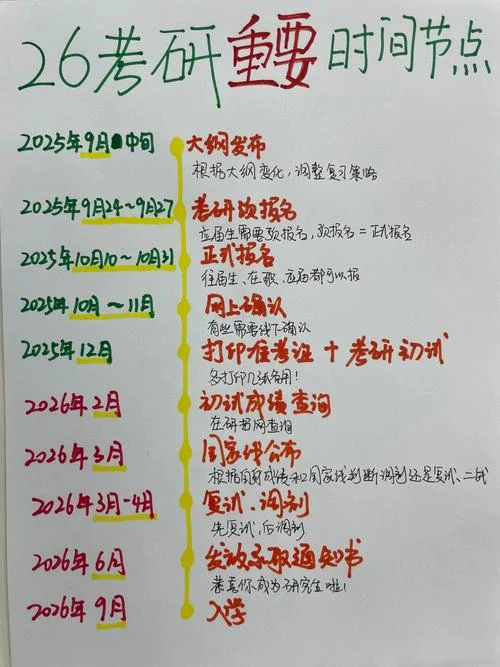 26考研重要时间节点
2025年9月中旬 大纲发布
根据大纲变化，调整复习策略
2025年9月24~9月27 考研预报名
应届生需要预报名，预报名=正式报名
2025年10月10~10月31 正式报名
往届生、在职、应届都可以报
2025年10月~11月 网上确认
有些需要线下确认
2025年12月 打印准考证+考研初试
多打印几张备用！
2026年2月 初试成绩查询
在研招网查询
2026年3月 国家线公布
根据自身成绩和国家线判断调剂还是复试、二战
2026年3月-4月 复试、调剂
先复试，后调剂
2026年6月 发放录取通知书
恭喜你成为研究生啦！
2026年9月 入学